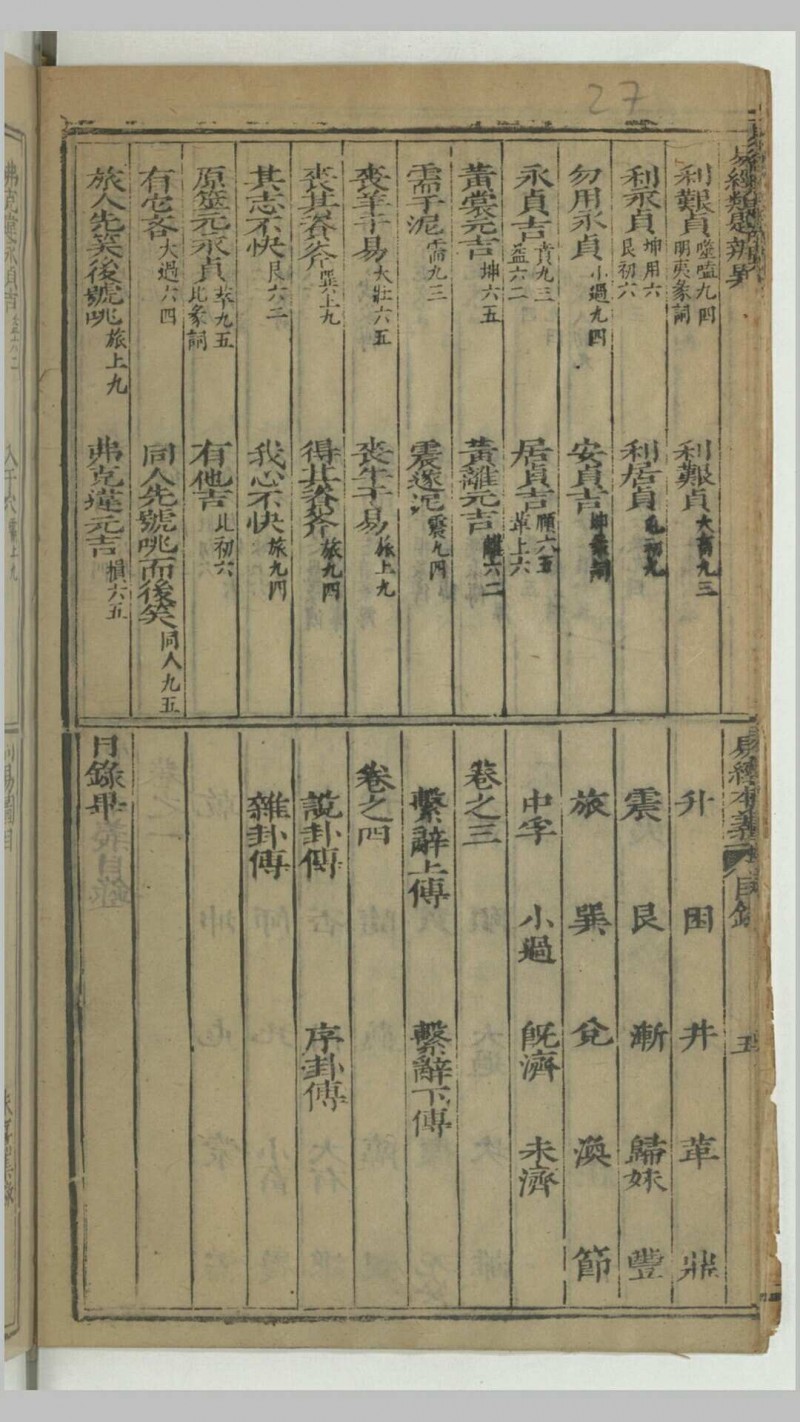 27
易經類題辨異
利艱貞 噬嗑九四 明夷彖詞 利艱貞 大畜九三
利永貞 坤用六 艮初六 利居貞 屯初九
勿用永貞 小過九四 安貞吉 坤彖詞
永貞吉 賁九三 益六二 居貞吉 頤六五 革上六
黃裳元吉 坤六五 黃離元吉 離六二
需于泥 需九三 震遂泥 震九四
喪羊于易 大壯六五 喪牛于易 旅上九
喪其資斧 巽上九 得其資斧 旅九四
其志不快 艮六二 我心不快 旅九四
原筮元永貞 萃九五 比彖詞 有他吉 比初六
有它吝 大過六四 同人先號咷而後笑 同人九五
旅人先笑後號咷 旅上九 弗克違元吉 損六五
易經本義 目錄 五
升 困 井 革 鼎
震 艮 漸 歸妹 豐
旅 巽 兌 渙 節
中孚 小過 旣濟 未濟
卷之三
繫辭上傳 繫辭下傳
卷之四
說卦傳 序卦傳
雜卦傳
目錄畢